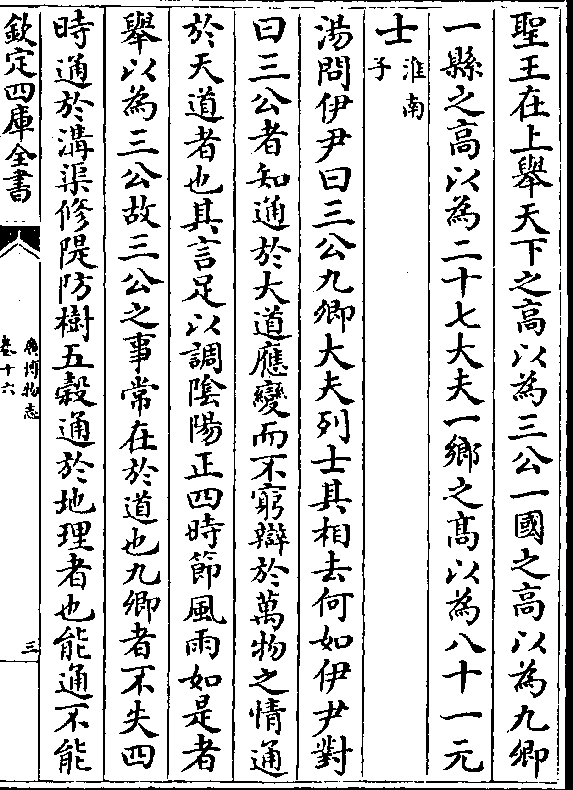 聖王在上舉天下之高以為三公一國之高以為九卿
一縣之高以為二十七大夫一鄉之髙以為八十一元
士淮南子
湯問伊尹曰三公九卿大夫列士其相去何如伊尹對
曰三公者知通於大道應變而不窮辯於萬物之情通
於天道者也其言足以調陰陽正四時節風雨如是者
舉以為三公故三公之事常在於道也九卿者不失四
時通於溝渠修隄防樹五穀通於地理者也能通不能
欽定四庫全書
廣博物志
卷十六
三